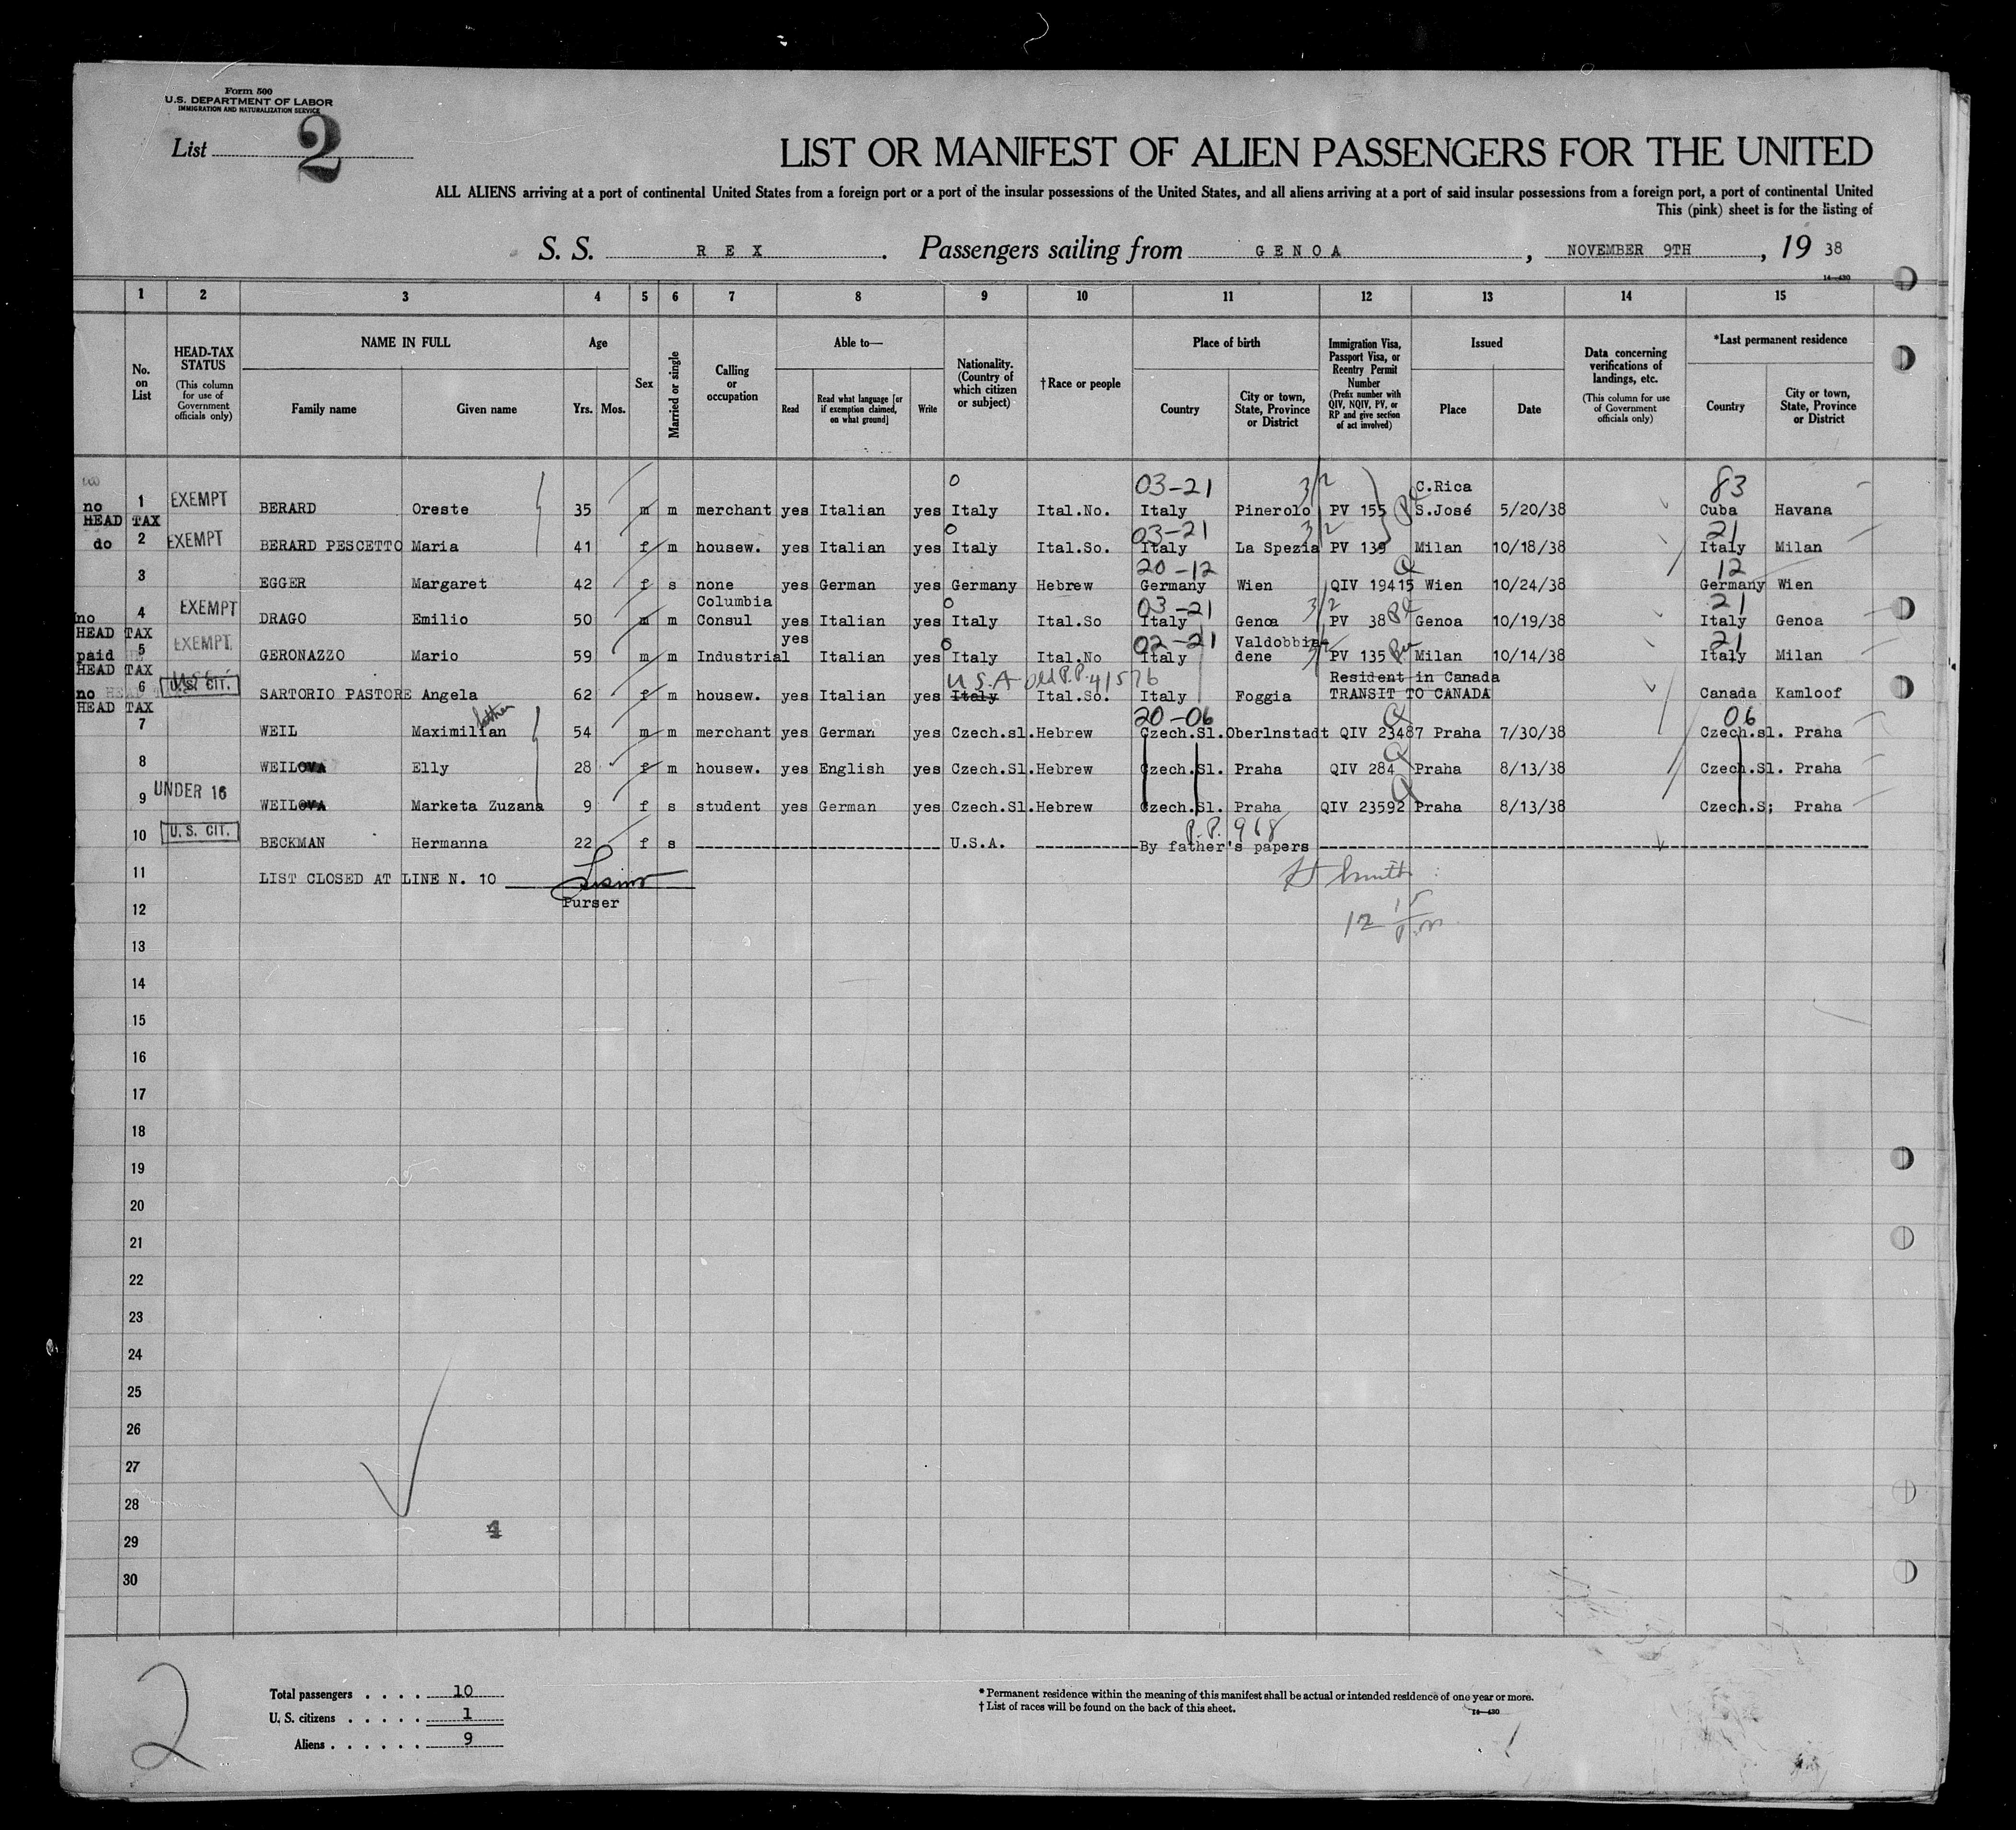 Form 500
U.S. DEPARTMENT OF LABOR
IMMIGRATION AND NATURALIZATION SERVICE
List 2
LIST OR MANIFEST OF ALIEN PASSENGERS FOR THE UNITED
ALL ALIENS arriving at a port of continental United States from a foreign port or a port of the insular possessions of the United States, and all aliens arriving at a port of said insular possessions from a foreign port, a port of continental United
This (pink) sheet is for the listing of
S. S. REX. Passengers sailing from GENOA, NOVEMBER 9TH, 19 38
14—430
1 2 3 4 5 6 7 8 9 10 11 12 13 14 15
No. on List
HEAD-TAX STATUS (This column for use of Government officials only)
NAME IN FULL
Family name Given name
Age
Yrs. Mos.
Sex
Married or single
Calling or occupation
Able to—
Read Read what language [or if exemption claimed, on what ground] Write
Nationality. (Country of which citizen or subject)
†Race or people
Place of birth
Country City or town, State, Province or District
Immigration Visa, Passport Visa, or Reentry Permit Number (Prefix number with QIV, NQIV, PV, or RP and give section of act involved)
Issued
Place Date
Data concerning verifications of landings, etc. (This column for use of Government officials only)
*Last permanent residence
Country City or town, State, Province or District
0 03-21 3/2 C.Rica 83
no 1 EXEMPT BERARD Oreste 35 m m merchant yes Italian yes Italy Ital.No. Italy Pinerolo PV 155 S.José 5/20/38 Cuba Havana
HEAD TAX
0 03-21 3/2 21
do 2 EXEMPT BERARD PESCETTO Maria 41 f m housew. yes Italian yes Italy Ital.So. Italy La Spezia PV 139 Milan 10/18/38 Italy Milan
20-12 Q 12
3 EGGER Margaret 42 f s none yes German yes Germany Hebrew Germany Wien QIV 19415 Wien 10/24/38 Germany Wien
Columbia 0 03-21 3/2 21
no 4 EXEMPT DRAGO Emilio 50 m m Consul yes Italian yes Italy Ital.So Italy Genoa PV 38 Genoa 10/19/38 Italy Genoa
HEAD TAX
yes 0 02-21 Valdobbia- 21
paid 5 EXEMPT. GERONAZZO Mario 59 m m Industrial Italian yes Italy Ital.No Italy dene PV 135 Milan 10/14/38 Italy Milan
HEAD TAX
U.S.A old P.P. 41576 Resident in Canada
no 6 U.S. CIT. SARTORIO PASTORE Angela 62 f m housew. yes Italian yes Italy Ital.So. Italy Foggia TRANSIT TO CANADA Canada Kamloof
HEAD TAX
father 20-06 Q 06
7 WEIL Maximilian 54 m m merchant yes German yes Czech.sl. Hebrew Czech.Sl. Oberlnstadt QIV 23487 Praha 7/30/38 Czech.sl. Praha
Q
8 WEILOVA Elly 28 f m housew. yes English yes Czech.Sl. Hebrew Czech.Sl. Praha QIV 284 Praha 8/13/38 Czech.Sl. Praha
Q
9 UNDER 16 WEILOVA Marketa Zuzana 9 f s student yes German yes Czech.Sl. Hebrew Czech.Sl. Praha QIV 23592 Praha 8/13/38 Czech.S; Praha
P.P. 968
10 U.S. CIT. BECKMAN Hermanna 22 f s U.S.A. By father's papers
11 LIST CLOSED AT LINE N. 10
Purser
12 12 15 p.m.
13
14
15
16
17
18
19
20
21
22
23
24
25
26
27
28
4
29
30
2
Total passengers . . . . 10
U. S. citizens . . . . . 1
Aliens . . . . . . 9
* Permanent residence within the meaning of this manifest shall be actual or intended residence of one year or more.
† List of races will be found on the back of this sheet.
14—430